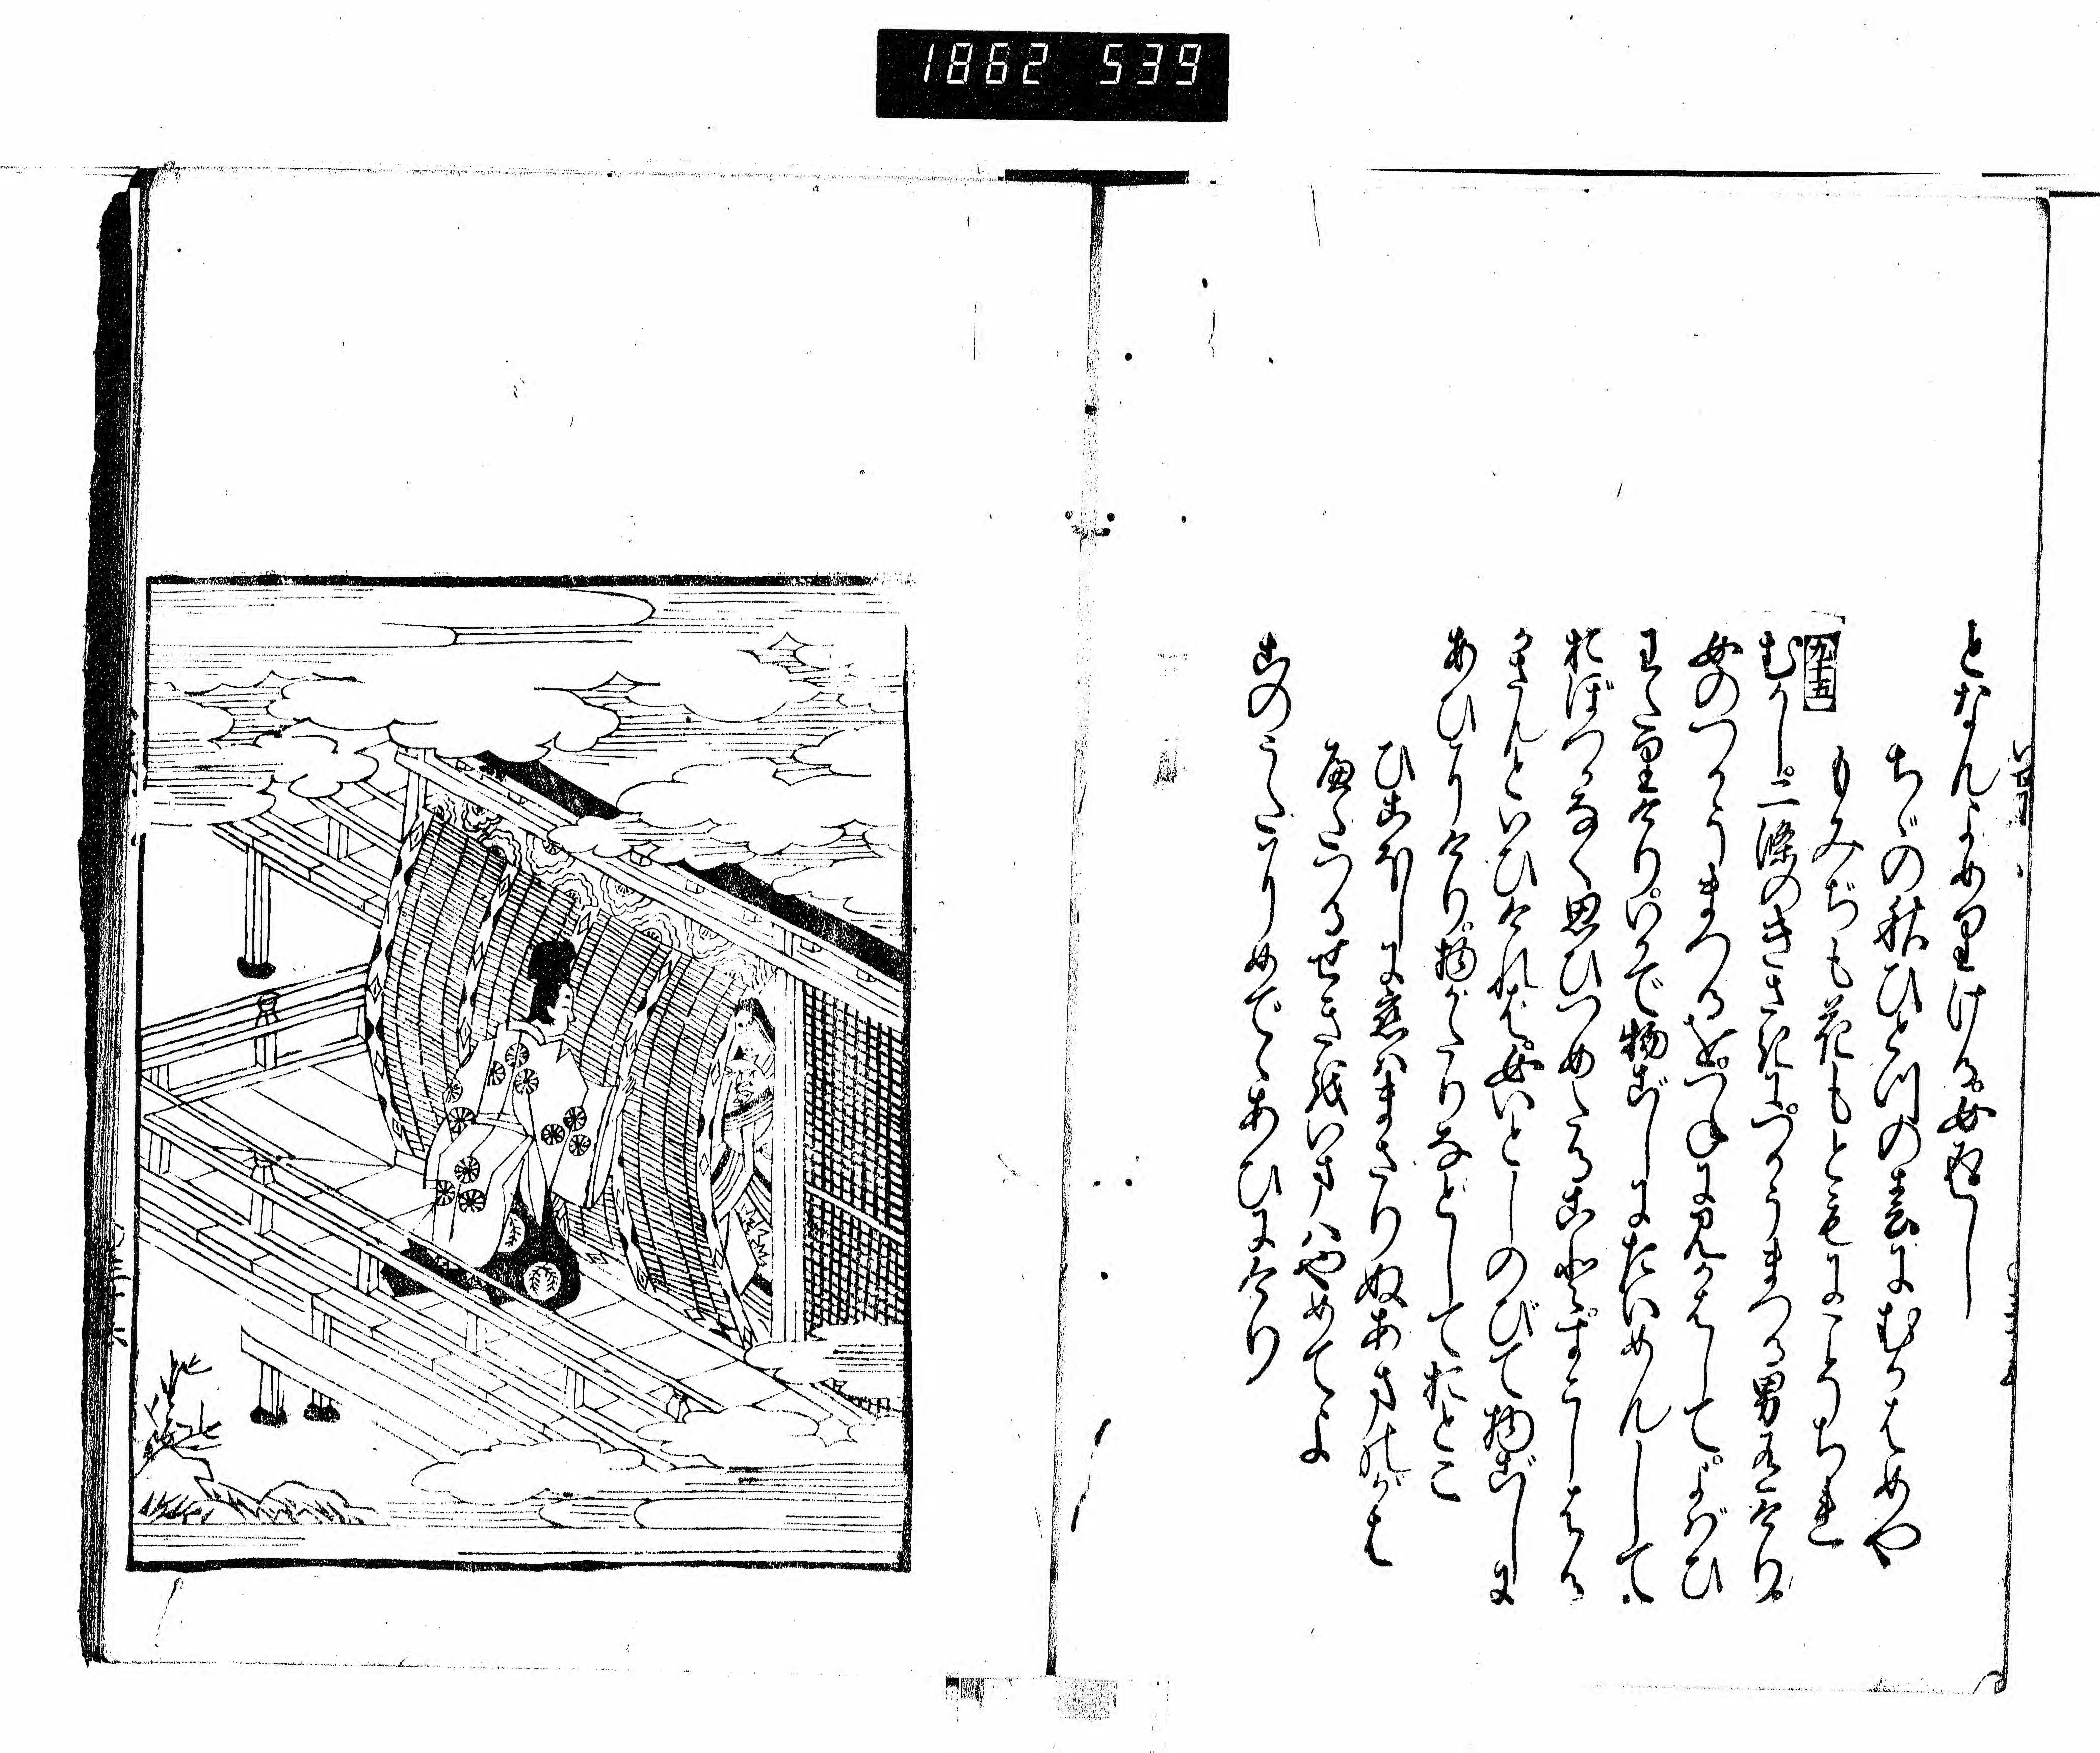 1862 539
となんよめりける女返し
ちゞの秋ひとつの春にむかはめや
もみぢも花もともにこそちれ
九十五
むかし二條のきさきにつかうまつる男有けり
女のつかうまつるをつねに見かはしてよばひ
わたりけりいかで物ごしにたいめんして
おぼつかなく思ひつめたることすこしはる
かさんといひければ女いとしのびて物ごしに
あひにけり物がたりなどしておとこ
ひこぼしに恋はまさりぬあまの河
へだつるせきをいまはやめてよ
このうたにめでゝあひにけり